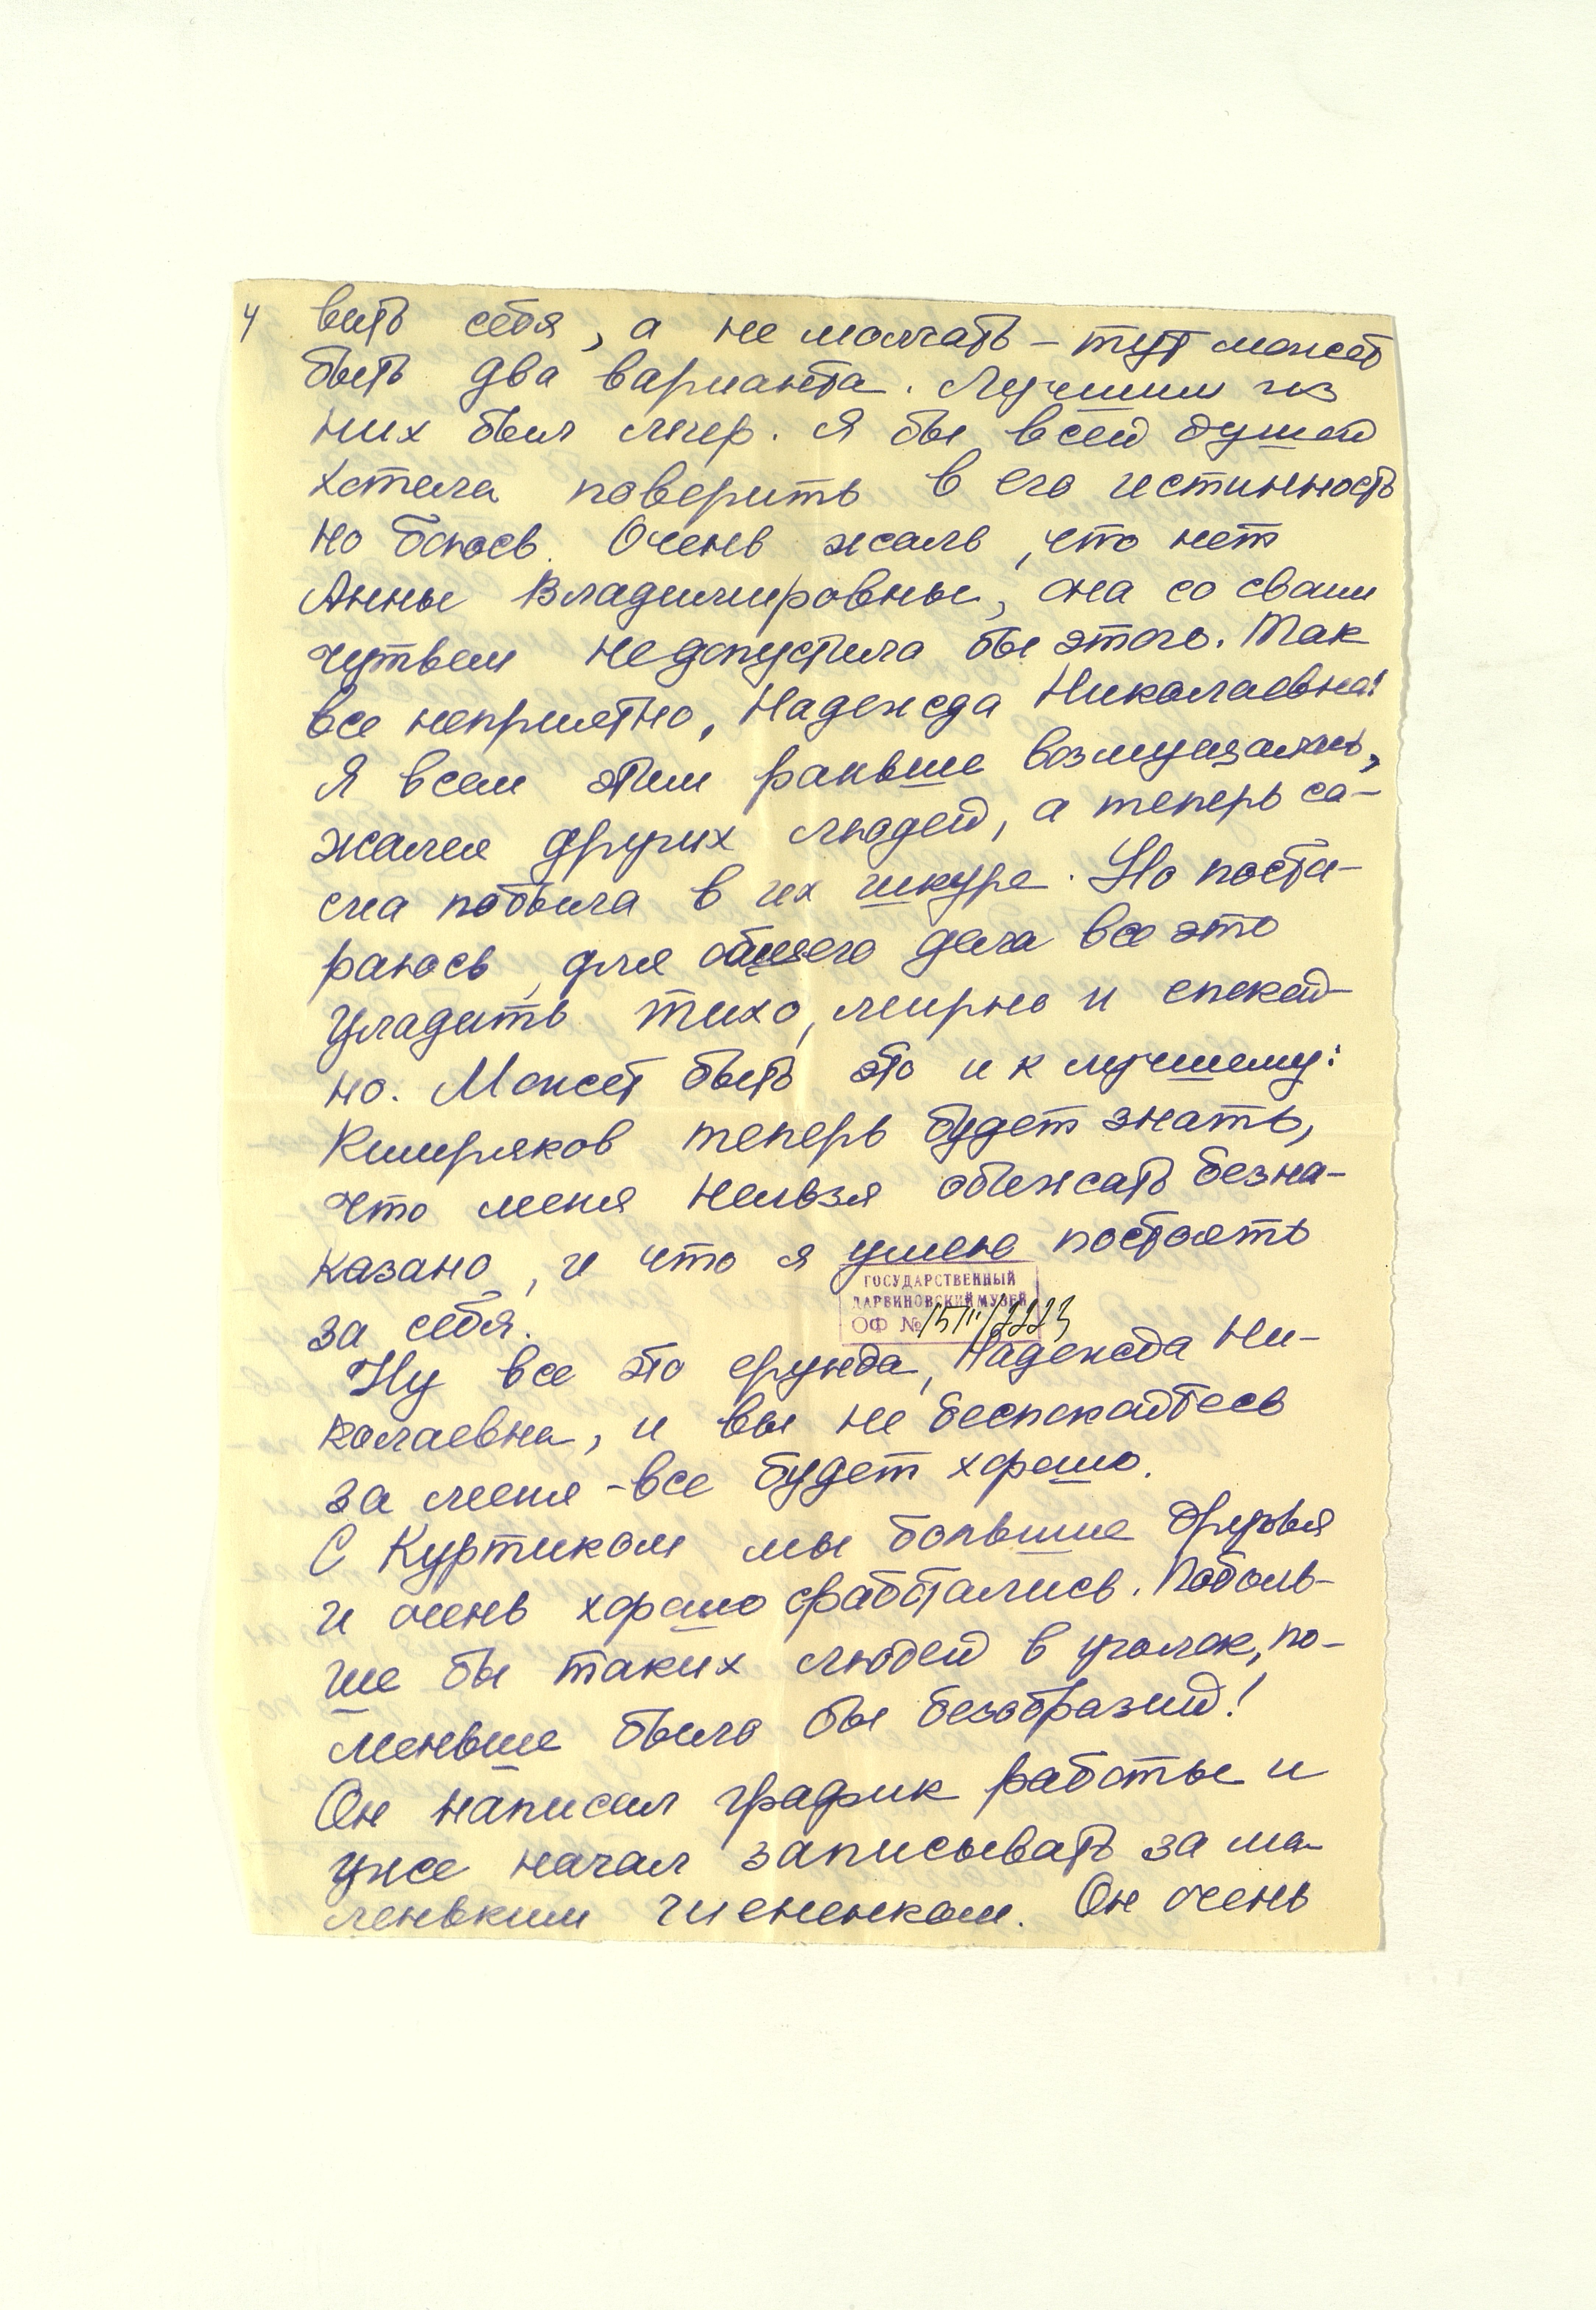 4
вить себя, а не молчать – тут может
быть два варианта. Лучшим из
них был мир. Я бы всей душой
хотела поверить в его истинность
но боюсь. Очень жаль, что нет
Анны Владимировны, она со своим
чутьем недопустила бы этого. Так
все неприятно, Надежда Николаевна!
Я всем этим раньше возмущалась,
жалея других людей, а теперь са-
сма побыла в их шкуре. Но поста-
раюсь, для общего дела все это
уладить тихо, мирно и спокой-
но. Может быть это и к лучшему:
Кширяков теперь будет знать,
что меня нельзя обижать безна-
казано, и что я умею постоять
за себя.
ГОСУДАРСТВЕННЫЙ
ДАРВИНОВСКИЙ МУЗЕЙ
ОФ №
Ну все это ерунда, Надежда Ни-
колаевна, и вы не беспокойтесь
за меня – все будет хорошо.
С Куртиком мы большие друзья
и очень хорошо сработались. Поболь-
ше бы таких людей в уголок, по-
меньше было бы безобразий!
Он написал график работы и
уже начал записывать за ма-
леньким гиененком. Он очень